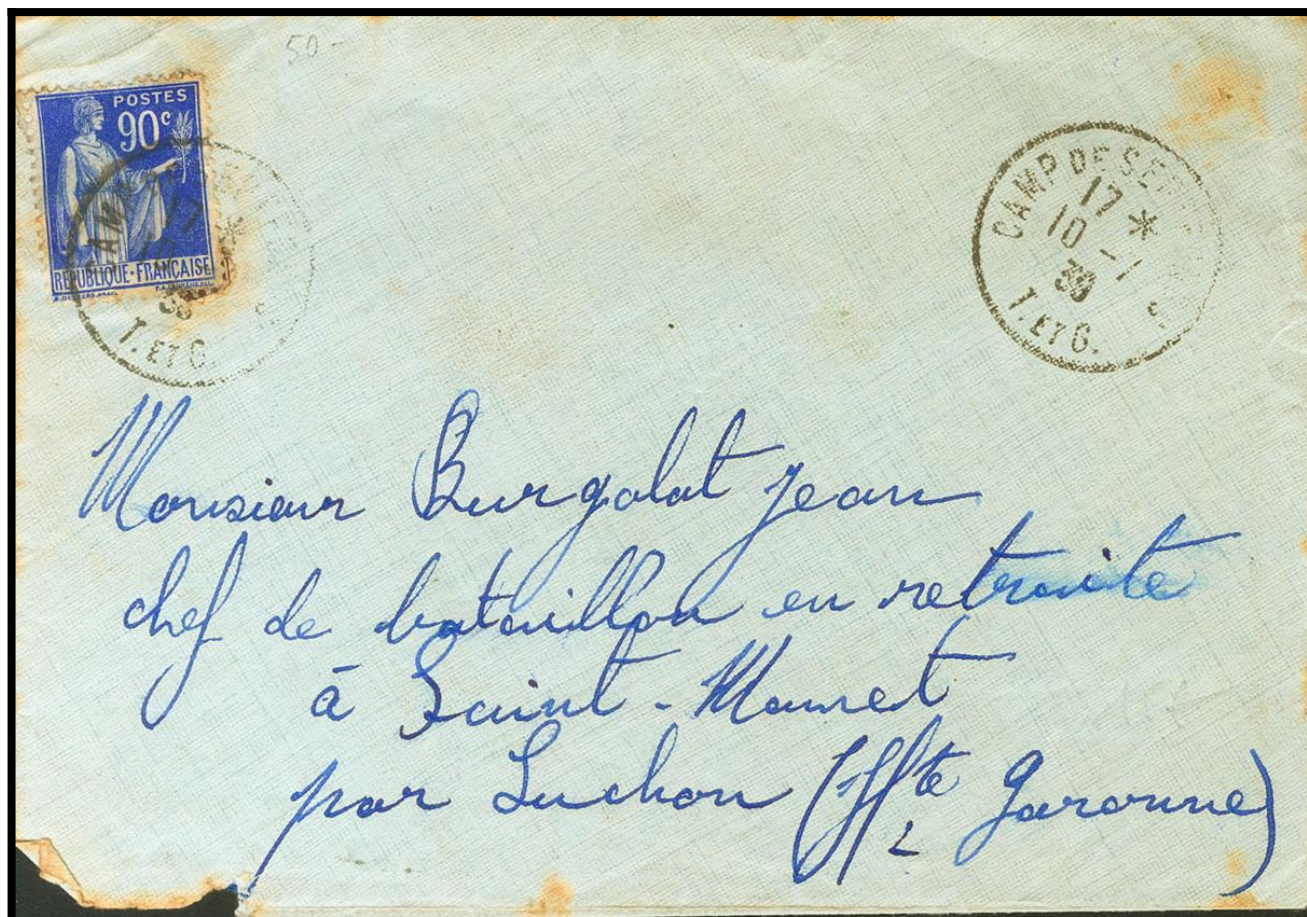 50-
POSTES
90c
RÉPUBLIQUE·FRANÇAISE
CAMP DE SEPTFONDS
17 *
10 - 1
39
T. ET G.
Monsieur Burgalat Jean
chef de bataillon en retraite
à Saint-Mamet
par Luchon (Hte Garonne)